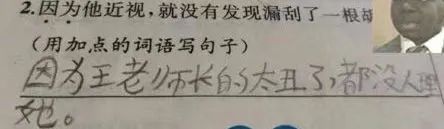 2.因为他近视，就没有发现漏刮了一根胡
（用加点的词语写句子）
因为王老师长的太丑了，都没人理
她。